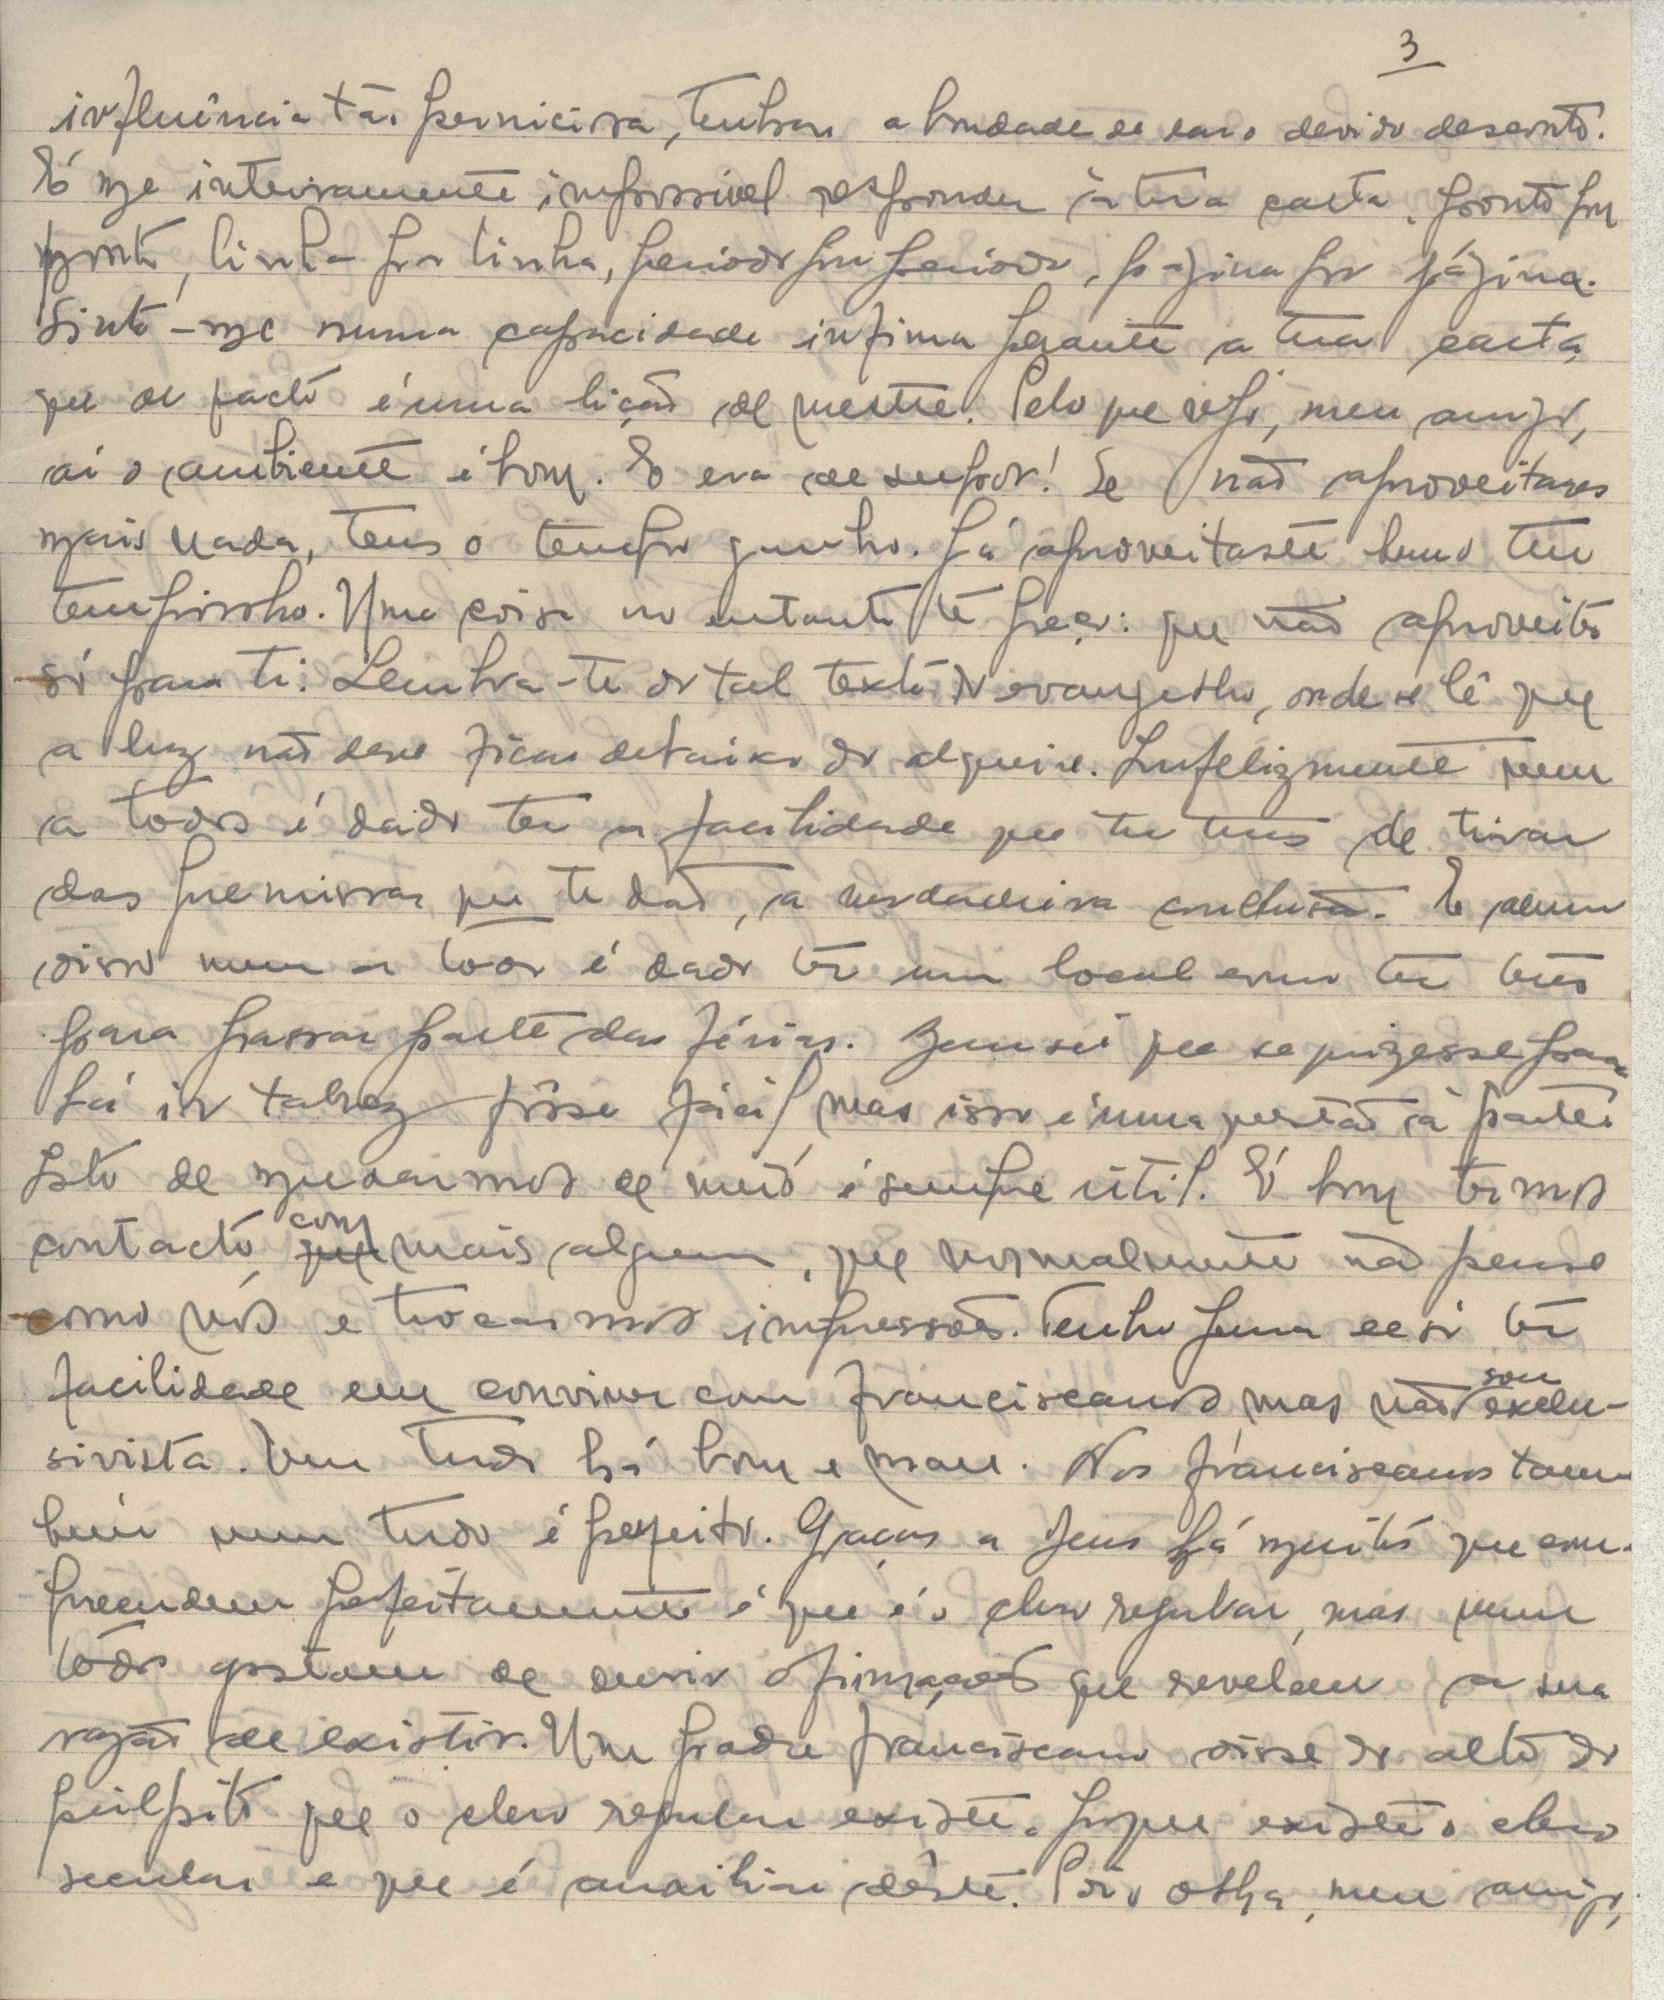 3
influência tão perniciosa, tenham a bondade de dar o devido desconto.
É-me inteiramente impossível responder à tua carta, ponto por
ponto, linha por linha, período por período, página por página.
Sinto-me numa capacidade ínfima perante a tua carta
que de facto é uma lição de mestre. Pelo que vejo, meu amigo,
aí o ambiente é bom. E era de supor! Se não aproveitares
mais nada, tens o tempo ganho. Já aproveitaste bem o teu
tempinho. Uma coisa no entanto te peço: que não aproveites
só para ti. Lembra-te do tal texto do evangelho, onde se lê que
a luz não deve ficar debaixo do alqueire. Infelizmente nem
a todos é dado ter a facilidade que tu tens de tirar
das premissas que te dão, a verdadeira conclusão. E alem
disso nem a todos é dado ter um local como tu tens
para passar parte das férias. Bem sei que se quizesse para
lá ir talvez fôsse fácil mas isso é uma questão à parte.
Isto de mudarmos de meio é sempre útil. É bom termos
contacto com mais alguem, que normalmente não pense
como nós e trocarmos impressões. Tenho pena de só ter
facilidade em conviver com franciscanos mas não sou exclu-
sivista. Em tudo há bom e mau. Nos franciscanos tam-
bém nem tudo é perfeito. Graças a Deus há muitos que com-
preendem perfeitamente o que é o clero regular, mas nem
todos gostam de ouvir afirmações que revelem a sua
razão de existir. Um padre franciscano disse do alto do
púlpito que o clero regular existe, porque existe o clero
secular e que é auxiliar dêste. Pois olha, meu amigo,